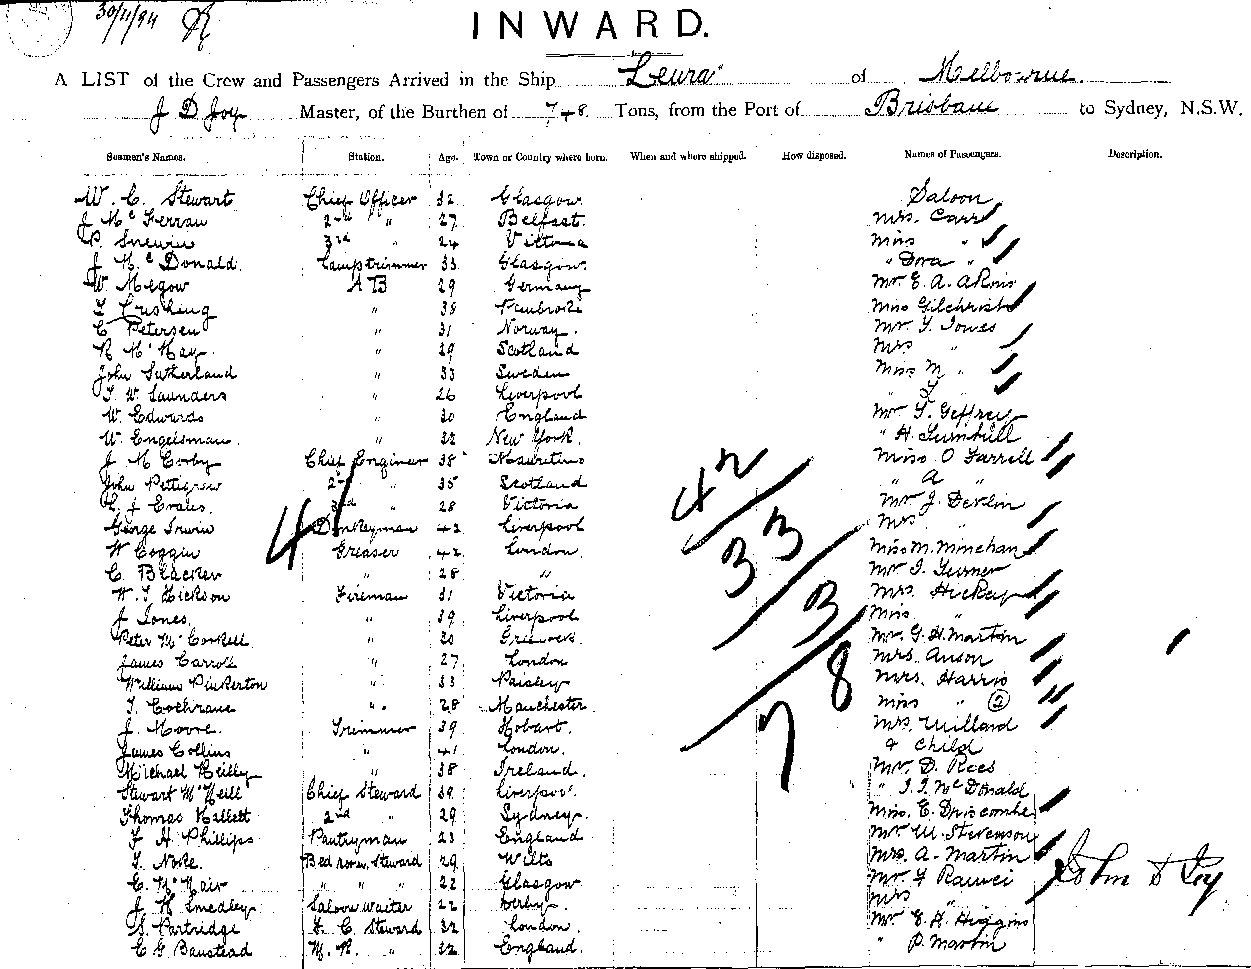 30/11/94
INWARD.
A LIST of the Crew and Passengers Arrived in the Ship Leura of Melbourne.
J D Joy Master, of the Burthen of Tons, from the Port of Brisbane to Sydney, N.S.W.
Seamen's Names. Station. Age. Town or Country where born. When and where shipped. How disposed. Names of Passengers. Description.
W. C. Stewart Chief Officer 32 Glasgow Saloon
J McFerran 2nd " 27 Belfast. Mrs. Carr
3rd " 24 Victoria Miss "
J McDonald. Lamptrimmer 33 Glasgow. " Dora "
W. Megow AB 29 Germany Mr E. A. Akins
Cushing " 38 Pembroke Miss Gilchrist
C Petersen " 31 Norway. Mr T. Jones
R McKay. " 29 Scotland Mrs "
John Sutherland " 33 Sweden Miss M "
T. W. Saunders " 26 Liverpool " "
W. Edwards " 30 England Mr T. Geffrey
W. Engelsman. " 32 New York. " H. Turnbull
J M Corby Chief Engineer 38 Mauritius Miss O Farrell
John Pettigrew 2nd " 35 Scotland " A "
J Evans. 3rd " 28 Victoria Mr J. Devlin
George Irwin Donkeyman 42 Liverpool Mrs "
W Coggin Greaser 42 London. Miss M. Minehan
C. Blacker " 28 " Mr T. Turner
W. T. Hickson Fireman 31 Victoria Mrs. Hickey
J Jones. " 39 Liverpool Miss "
Peter McCorkell " 30 Greenock. Mr G. H. Martin
James Carroll " 27 London Mrs. Anson
William Pinkerton " 33 Paisley Mrs. Harris
T. Cochrane " 28 Manchester. Miss " 2
J. Moore. Trimmer 39 Hobart. Mrs. Willard
James Collins " 41 London. & Child
Michael Reilly " 38 Ireland. Mr. D. Rees
Stewart McNeill Chief Steward 39 Liverpool. " J. J. McDonald
Thomas Hallett 2nd " 29 Sydney. Miss. E. Driscombe
F H Phillips Pantryman 23 England Mr W. Stevenson
T. Noke. Bedroom Steward 29 Wilts Mrs. A. Martin
C. McNair " " " 22 Glasgow Mr F Ramei
J H Smedley Saloon Waiter 22 Derby. Mrs "
S. Partridge F. C. Steward 32 London. Mr E. H. Higgins
C G Banstead M. R. " 32 England. " P. Martin
41
42
33
3
78
John D Joy